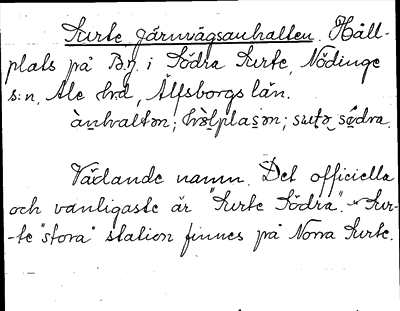 Surte järnvägsanhalten. Håll-
plats på B.J. i Södra Surte, Nödinge
s:n, Ale hrd, Älfsborgs län.
ànhaltən; hòlplasən; sùtə sö̀dra.
Växlande namn. Det officiella
och vanligaste är "Surte Södra". Sur-
-te "stora" station finnes på Norra Surte.